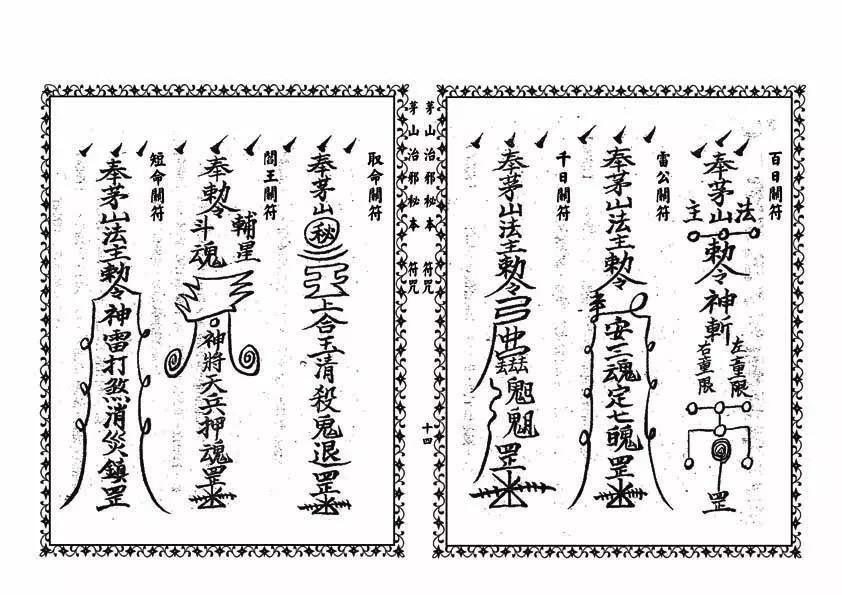 百日關符
奉茅山法主
勅令神斬
左童限
右童限
罡
雷公關符
奉茅山法主勅令
安三魂定七魄罡
千日關符
奉茅山法主勅令
罡
茅山治邪秘本 符咒
十四
茅山治邪秘本 符咒
取命關符
奉茅山秘
上合玉清殺鬼退罡
閻王關符
奉勅令
輔星
斗魂
神將天兵押魂罡
短命關符
奉茅山法主勅令
神雷打煞消災鎮罡